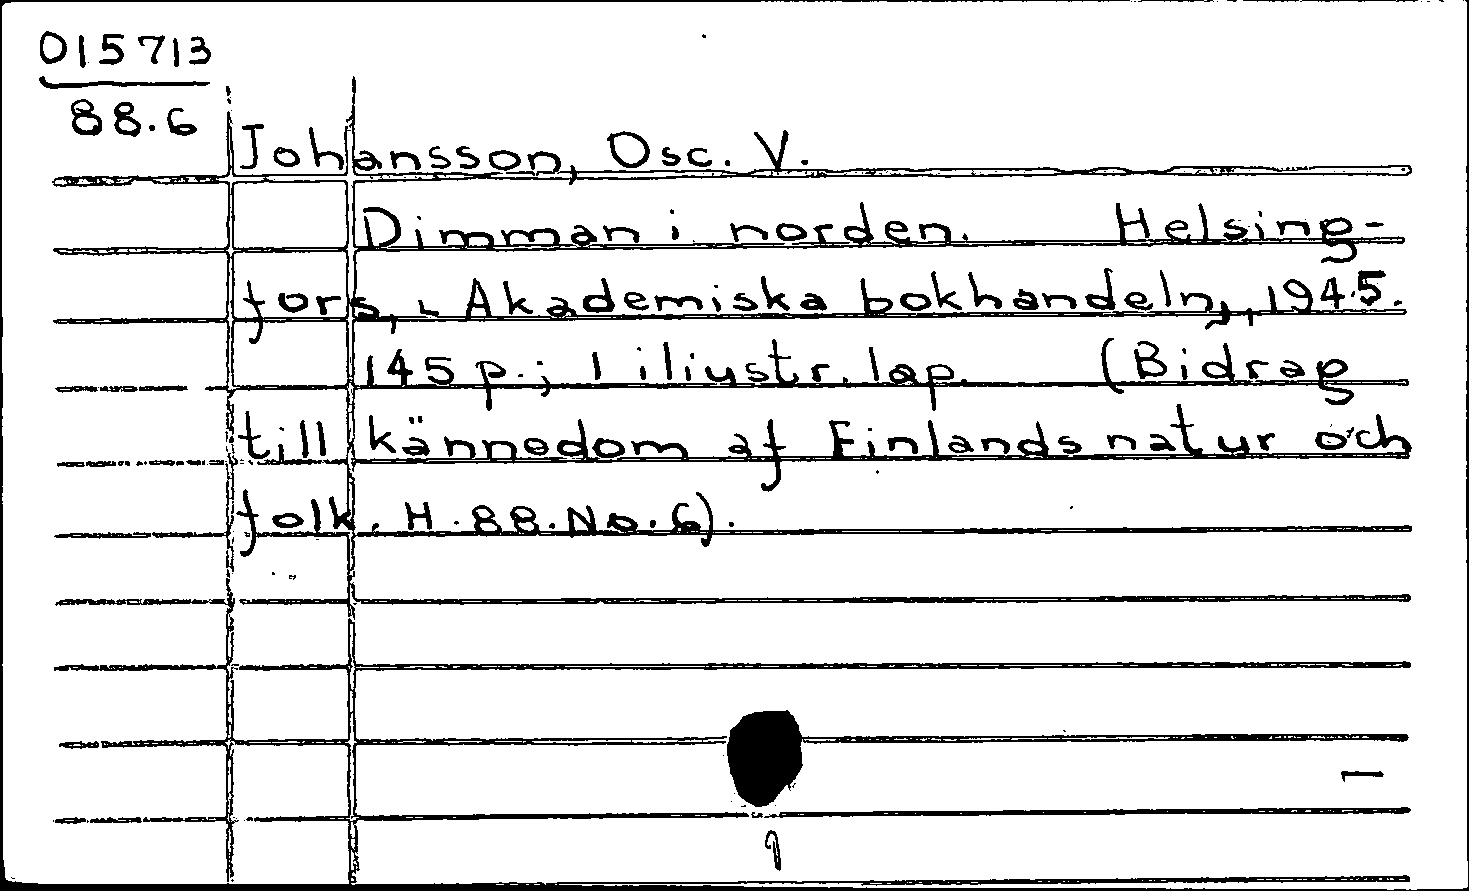 015713
88.6
Johansson, Osc. V.
Dimman i norden. Helsing-
fors, Akademiska bokhandeln, 1945.
145 p.; 1 iliustr. lap. (Bidrag
till kännedom af Finlands natur och
folk. H. 88. No. 6).